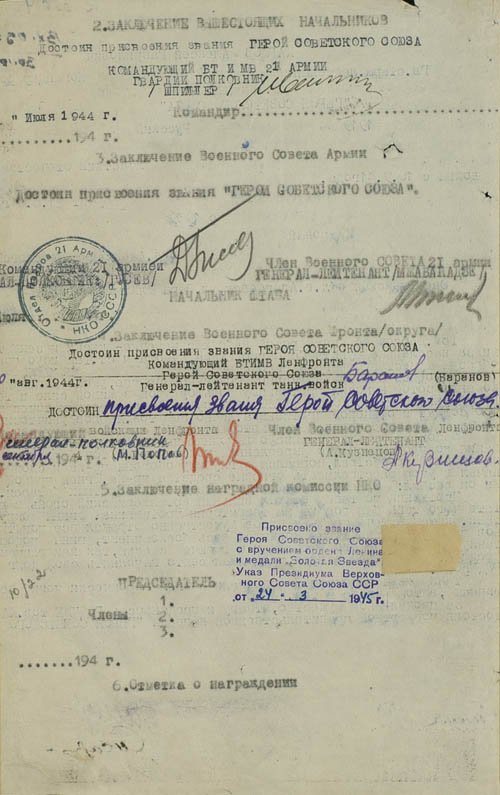 2.ЗАКЛЮЧЕНИЕ ВЫШЕСТОЯЩИХ НАЧАЛЬНИКОВ
Достоин присвоения звания ГЕРОЙ СОВЕТСКОГО СОЮЗА
КОМАНДУЮЩИЙ БТ И МВ 21 АРМИИ
ГВАРДИИ ПОЛКОВНИК
/ ШПИЛЛЕР /
" Июля 1944 г.
Командир
194 г.
3.Заключение Военного Совета Армии
Достоин присвоения звания "ГЕРОЯ СОВЕТСКОГО СОЮЗА".
Командующий 21 армией
/ГУСЕВ/
Член Военного СОВЕТА 21 армии
ГЕНЕРАЛ-ЛЕЙТЕНАНТ/МЖАВАНАДЗЕ/
НАЧАЛЬНИК ШТАБА
Отдел кадров 21 Арм
июля
4.Заключение Военного Совета Фронта/округа/
Достоин присвоения звания ГЕРОЯ СОВЕТСКОГО СОЮЗА
Командующий БТИМВ Ленфронта
Герой Советского Союза
Генерал-лейтенант танк.войск
(Баранов)
" авг.1944г.
ДОСТОИН присвоения звания Герой Советского Союза.
войсками Ленфронта
Член Военного Совета Ленфронта
генерал-полковник
(М.Попов)
ГЕНЕРАЛ-ЛЕЙТЕНАНТ
(А.Кузнецов)
194 г.
АКузнецов.
5.Заключение наградной комиссии НКО
Присвоено звание
Героя Советского Союза
с вручением ордена Ленина
и медали „Золотая Звезда"
Указ Президиума Верхов-
ного Совета Союза ССР
от „24" 3 1945г.
ПРЕДСЕДАТЕЛЬ
Члены
1.
2.
3.
.......194 г.
6.Отметка о награждении